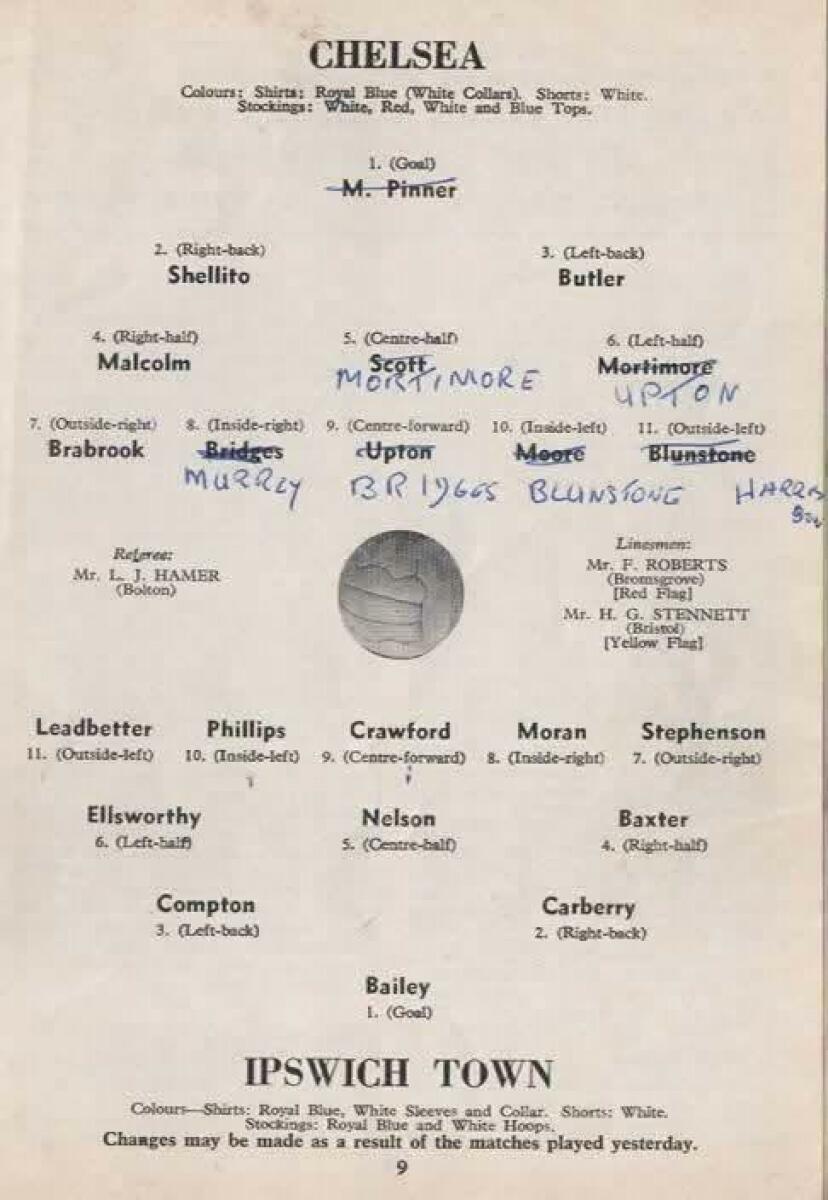 CHELSEA
Colours: Shirts: Royal Blue (White Collars). Shorts: White.
Stockings: White, Red, White and Blue Tops.
1. (Goal)
M. Pinner
2. (Right-back) 3. (Left-back)
Shellito Butler
4. (Right-half) 5. (Centre-half) 6. (Left-half)
Malcolm Scott Mortimore
MORTIMORE UPTON
7. (Outside-right) 8. (Inside-right) 9. (Centre-forward) 10. (Inside-left) 11. (Outside-left)
Brabrook Bridges Upton Moore Blunstone
MURREY BRIDGES BLUNSTONE HARRIS
Referee: Linesmen:
Mr. L. J. HAMER Mr. F. ROBERTS
(Bolton) (Bromsgrove)
[Red Flag]
Mr. H. G. STENNETT
(Bristol)
[Yellow Flag]
Leadbetter Phillips Crawford Moran Stephenson
11. (Outside-left) 10. (Inside-left) 9. (Centre-forward) 8. (Inside-right) 7. (Outside-right)
Ellsworthy Nelson Baxter
6. (Left-half) 5. (Centre-half) 4. (Right-half)
Compton Carberry
3. (Left-back) 2. (Right-back)
Bailey
1. (Goal)
IPSWICH TOWN
Colours—Shirts: Royal Blue, White Sleeves and Collar. Shorts: White.
Stockings: Royal Blue and White Hoops.
Changes may be made as a result of the matches played yesterday.
9